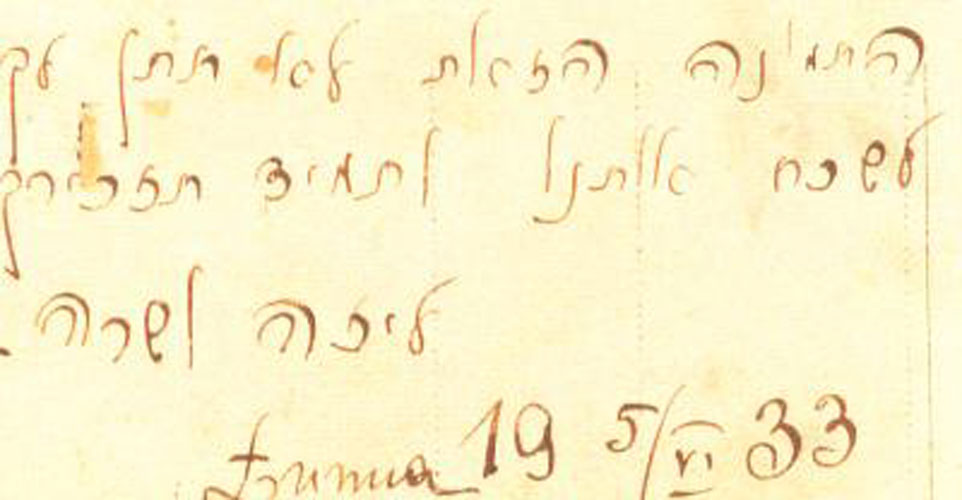 התמונה הזאת לא תתן לך
לשכח אותנו ותמיד תזכירך
ליזה ושרה
Łunna 19 5/VI 33